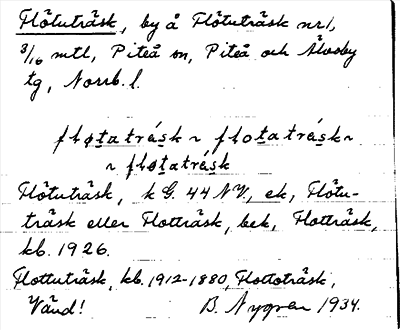 Flötuträsk, by å Flötuträsk nr 1,
3/16 mtl, Piteå sn, Piteå och Älvsby
tg, Norrb. l.
fløtaträsk ~ flotaträsk ~
~ fløtaträsk
Flötuträsk, k G. 44 NV, ek, Flötu-
träsk eller Flotträsk, bek, Flotträsk,
kb. 1926.
Flottuträsk, kb. 1912-1880, Flottoträsk,
Vänd! B. Nygren 1934.